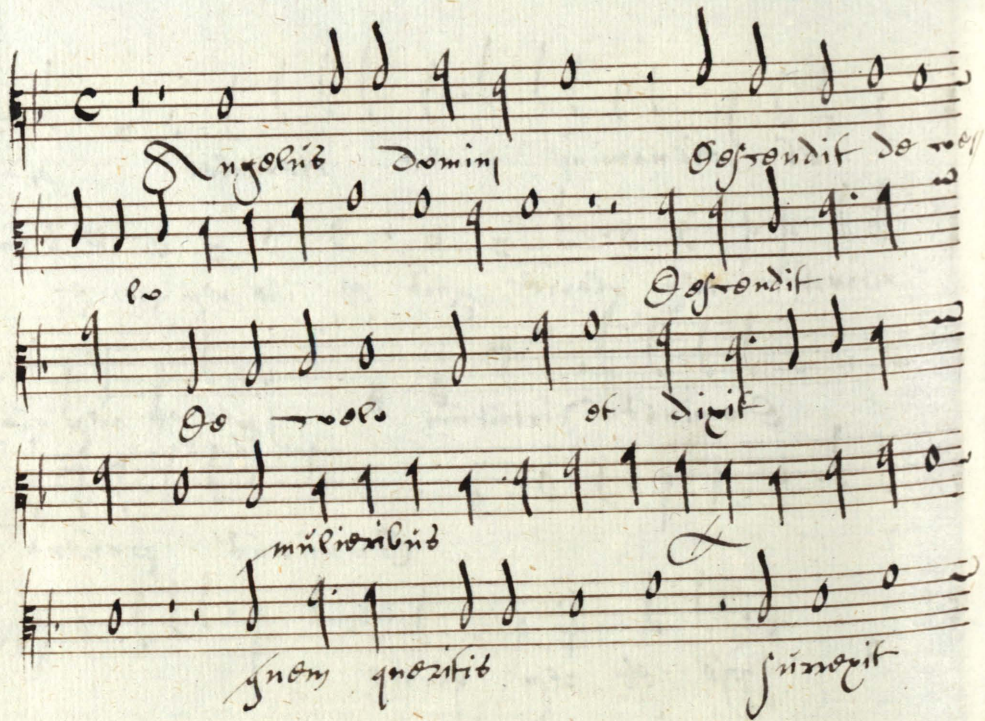 Angelus Domini Descendit de coe
lo Descendit
De coelo et dixit
mulieribus
quem queritis surrexit